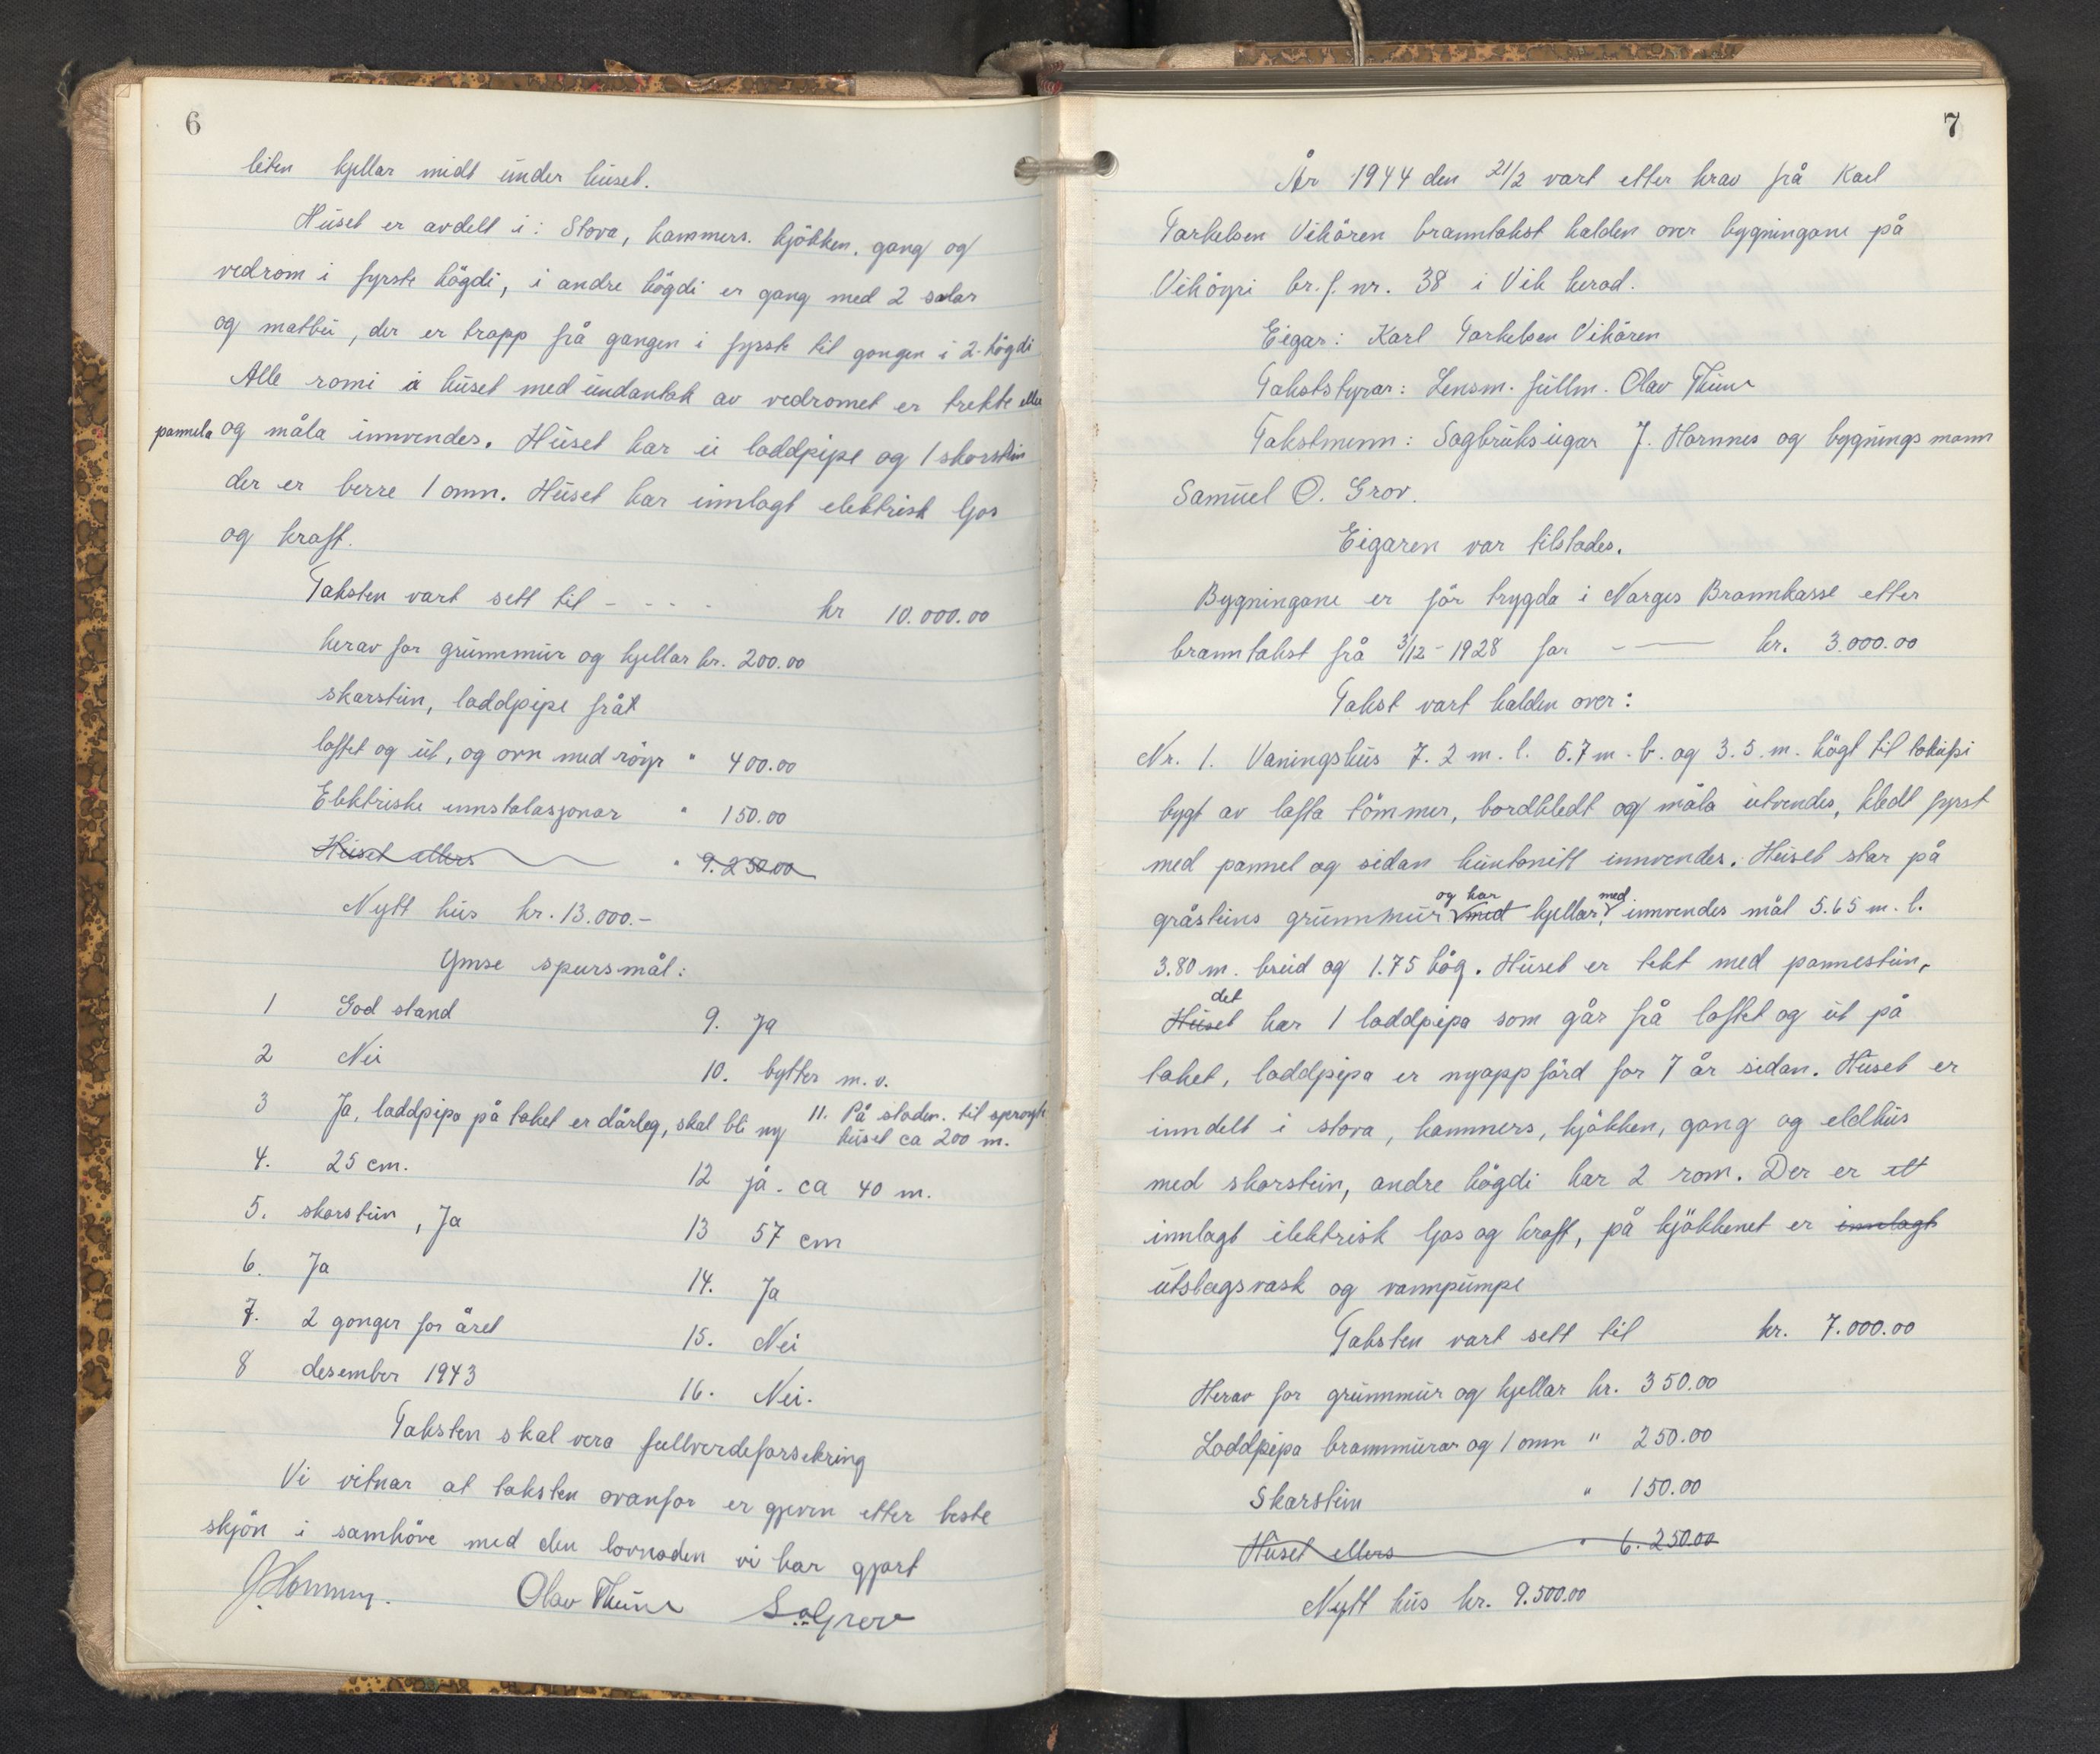 6
liten kjellar midt under huset.
Huset er avdelt i: Stova, kammers. kjökken, gang og
vedrom i fyrste högdi, i andre högdi er gang med 2 salar
og matbu, der er trapp frå gangen i fyrste til gangen i 2. högdi
Alle romi i huset med undantak av vedromet er trekte eller
pannela og måla innvendes. Huset har ei loddpipe og 1 skorstein
der er berre 1 omn. Huset har innlagt elektrisk ljos
og kraft.
Taksten vart sett til - - - - kr 10.000.00
herav for grunnmur og kjellar kr. 200.00
skorstein, loddpipe frå
loftet og ut, og ovn med röyr " 400.00
Elektriske innstalasjonar " 150.00
Huset ellers " 9.250.00
Nytt hus kr. 13.000.-
Ymse spursmål:
1 God stand
2 Nei
3 Ja, loddpipa på taket er dårleg, skal bli ny
4. 25 cm.
5. skorstein, Ja
6. Ja
7. 2 gonger for året
8 desember 1943
9. Ja
10. bytter m.v.
11. På staden. til sprøyte
huset ca 200 m.
12 ja. ca 40 m.
13 57 cm
14. Ja
15. Nei
16. Nei.
Taksten skal vera fullverdeforsekring
Vi vitnar at taksten ovanfor er gjeven etter beste
skjön i samhöve med den lovnaden vi har gjort
Olav Thune S.O. Grov
7
År 1944 den 21/2 vart etter krav frå Karl
Torkelsen Vikören branntakst halden over bygningane på
Viköyri br.f. nr. 38 i Vik herad.
Eigar: Karl Torkelsen Vikören
Takststyrar: Lensm. fullm. Olav Thune
Takstmenn: Sagbrukseigar J. Hornnes og bygningsmann
Samuel O. Grov.
Eigaren var tilstades.
Bygningane er för trygda i Norges Brannkasse etter
branntakst frå 3/12 - 1928 for - — kr. 3.000.00
Takst vart halden over:
Nr. 1. Vaningshus 7.2 m. l. 5.7 m. b. og 3.5 m. högt til takufsi
bygt av lafta tömmer, bordkledt og måla utvendes, kledt fyrst
med pannel og sidan huntonitt innvendes. Huset star på
og har med
gråsteins grunnmur med kjellar, innvendes mål 5.65 m. l.
3.80 m. breid og 1.75 hög. Huset er tekt med pannestein,
det
Huset har 1 loddpipa som går frå loftet og ut på
taket, loddpipa er nyoppförd for 7 år sidan. Huset er
inndelt i stova, kammers, kjökken, gang og eldhus
med skorstein, andre högdi har 2 rom. Der er ett
innlagt elektrisk ljos og kraft, på kjökkenet er innlagt
utslagsvask og vannpumpe
Taksten vart sett til kr. 7.000.00
Herav for grunnmur og kjellar kr. 350.00
Loddpipa brannmurar og 1 omn " 250.00
Skorstein " 150.00
Huset ellers " 6.250.00
Nytt hus kr. 9.500.00